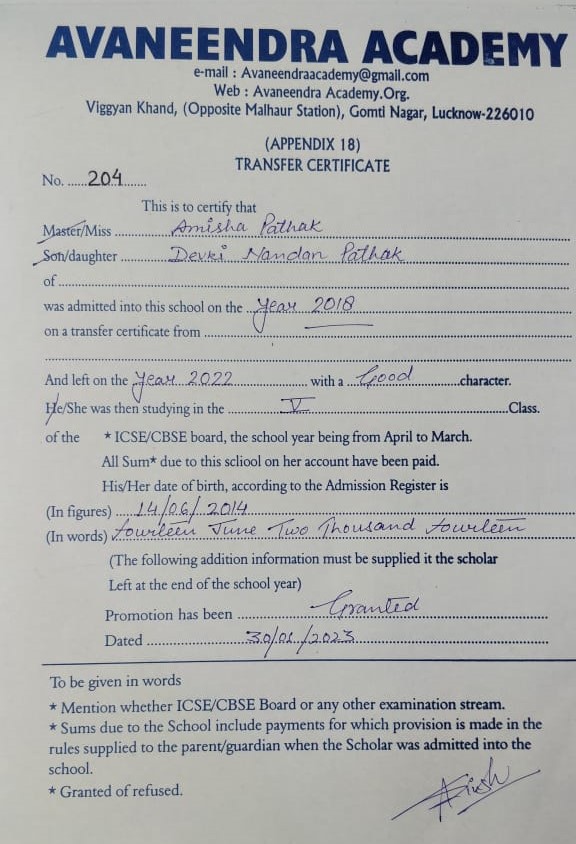 AVANEENDRA ACADEMY
e-mail : Avaneendraacademy@gmail.com
Web : Avaneendra Academy.Org.
Viggyan Khand, (Opposite Malhaur Station), Gomti Nagar, Lucknow-226010
(APPENDIX 18)
TRANSFER CERTIFICATE
No. ......204......
This is to certify that
Master/Miss .......... Amisha Pathak ..........
Son/daughter .......... Devki Nandan Pathak ..........
of ..........
was admitted into this school on the .. Year 2018 ..........
on a transfer certificate from ..........
And left on the Year 2022 .......... with a ... Good .......... character.
He/She was then studying in the .......... V .......... Class.
of the * ICSE/CBSE board, the school year being from April to March.
All Sum* due to this scliool on her account have been paid.
His/Her date of birth, according to the Admission Register is
(In figures) ..... 14/06/2014 ..........
(In words) fourteen June Two Thousand fourteen
(The following addition information must be supplied it the scholar
Left at the end of the school year)
Promotion has been .......... Granted ..........
Dated .......... 30/01/2023 ..........
To be given in words
* Mention whether ICSE/CBSE Board or any other examination stream.
* Sums due to the School include payments for which provision is made in the
rules supplied to the parent/guardian when the Scholar was admitted into the
school.
* Granted of refused.